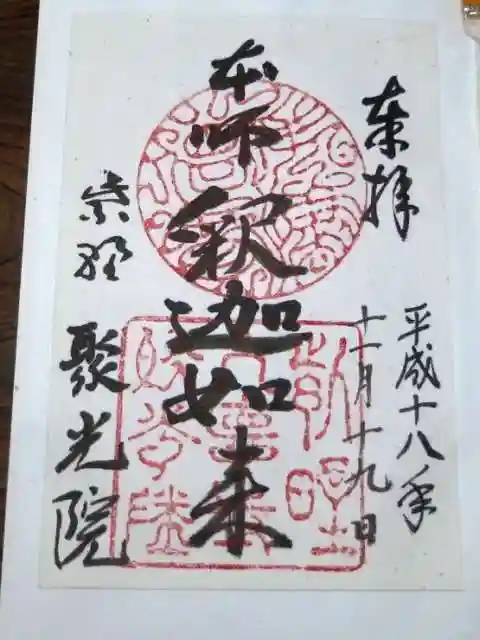 奉拝
平成十八年
十一月十九日
本師釈迦如来
紫野
聚光院